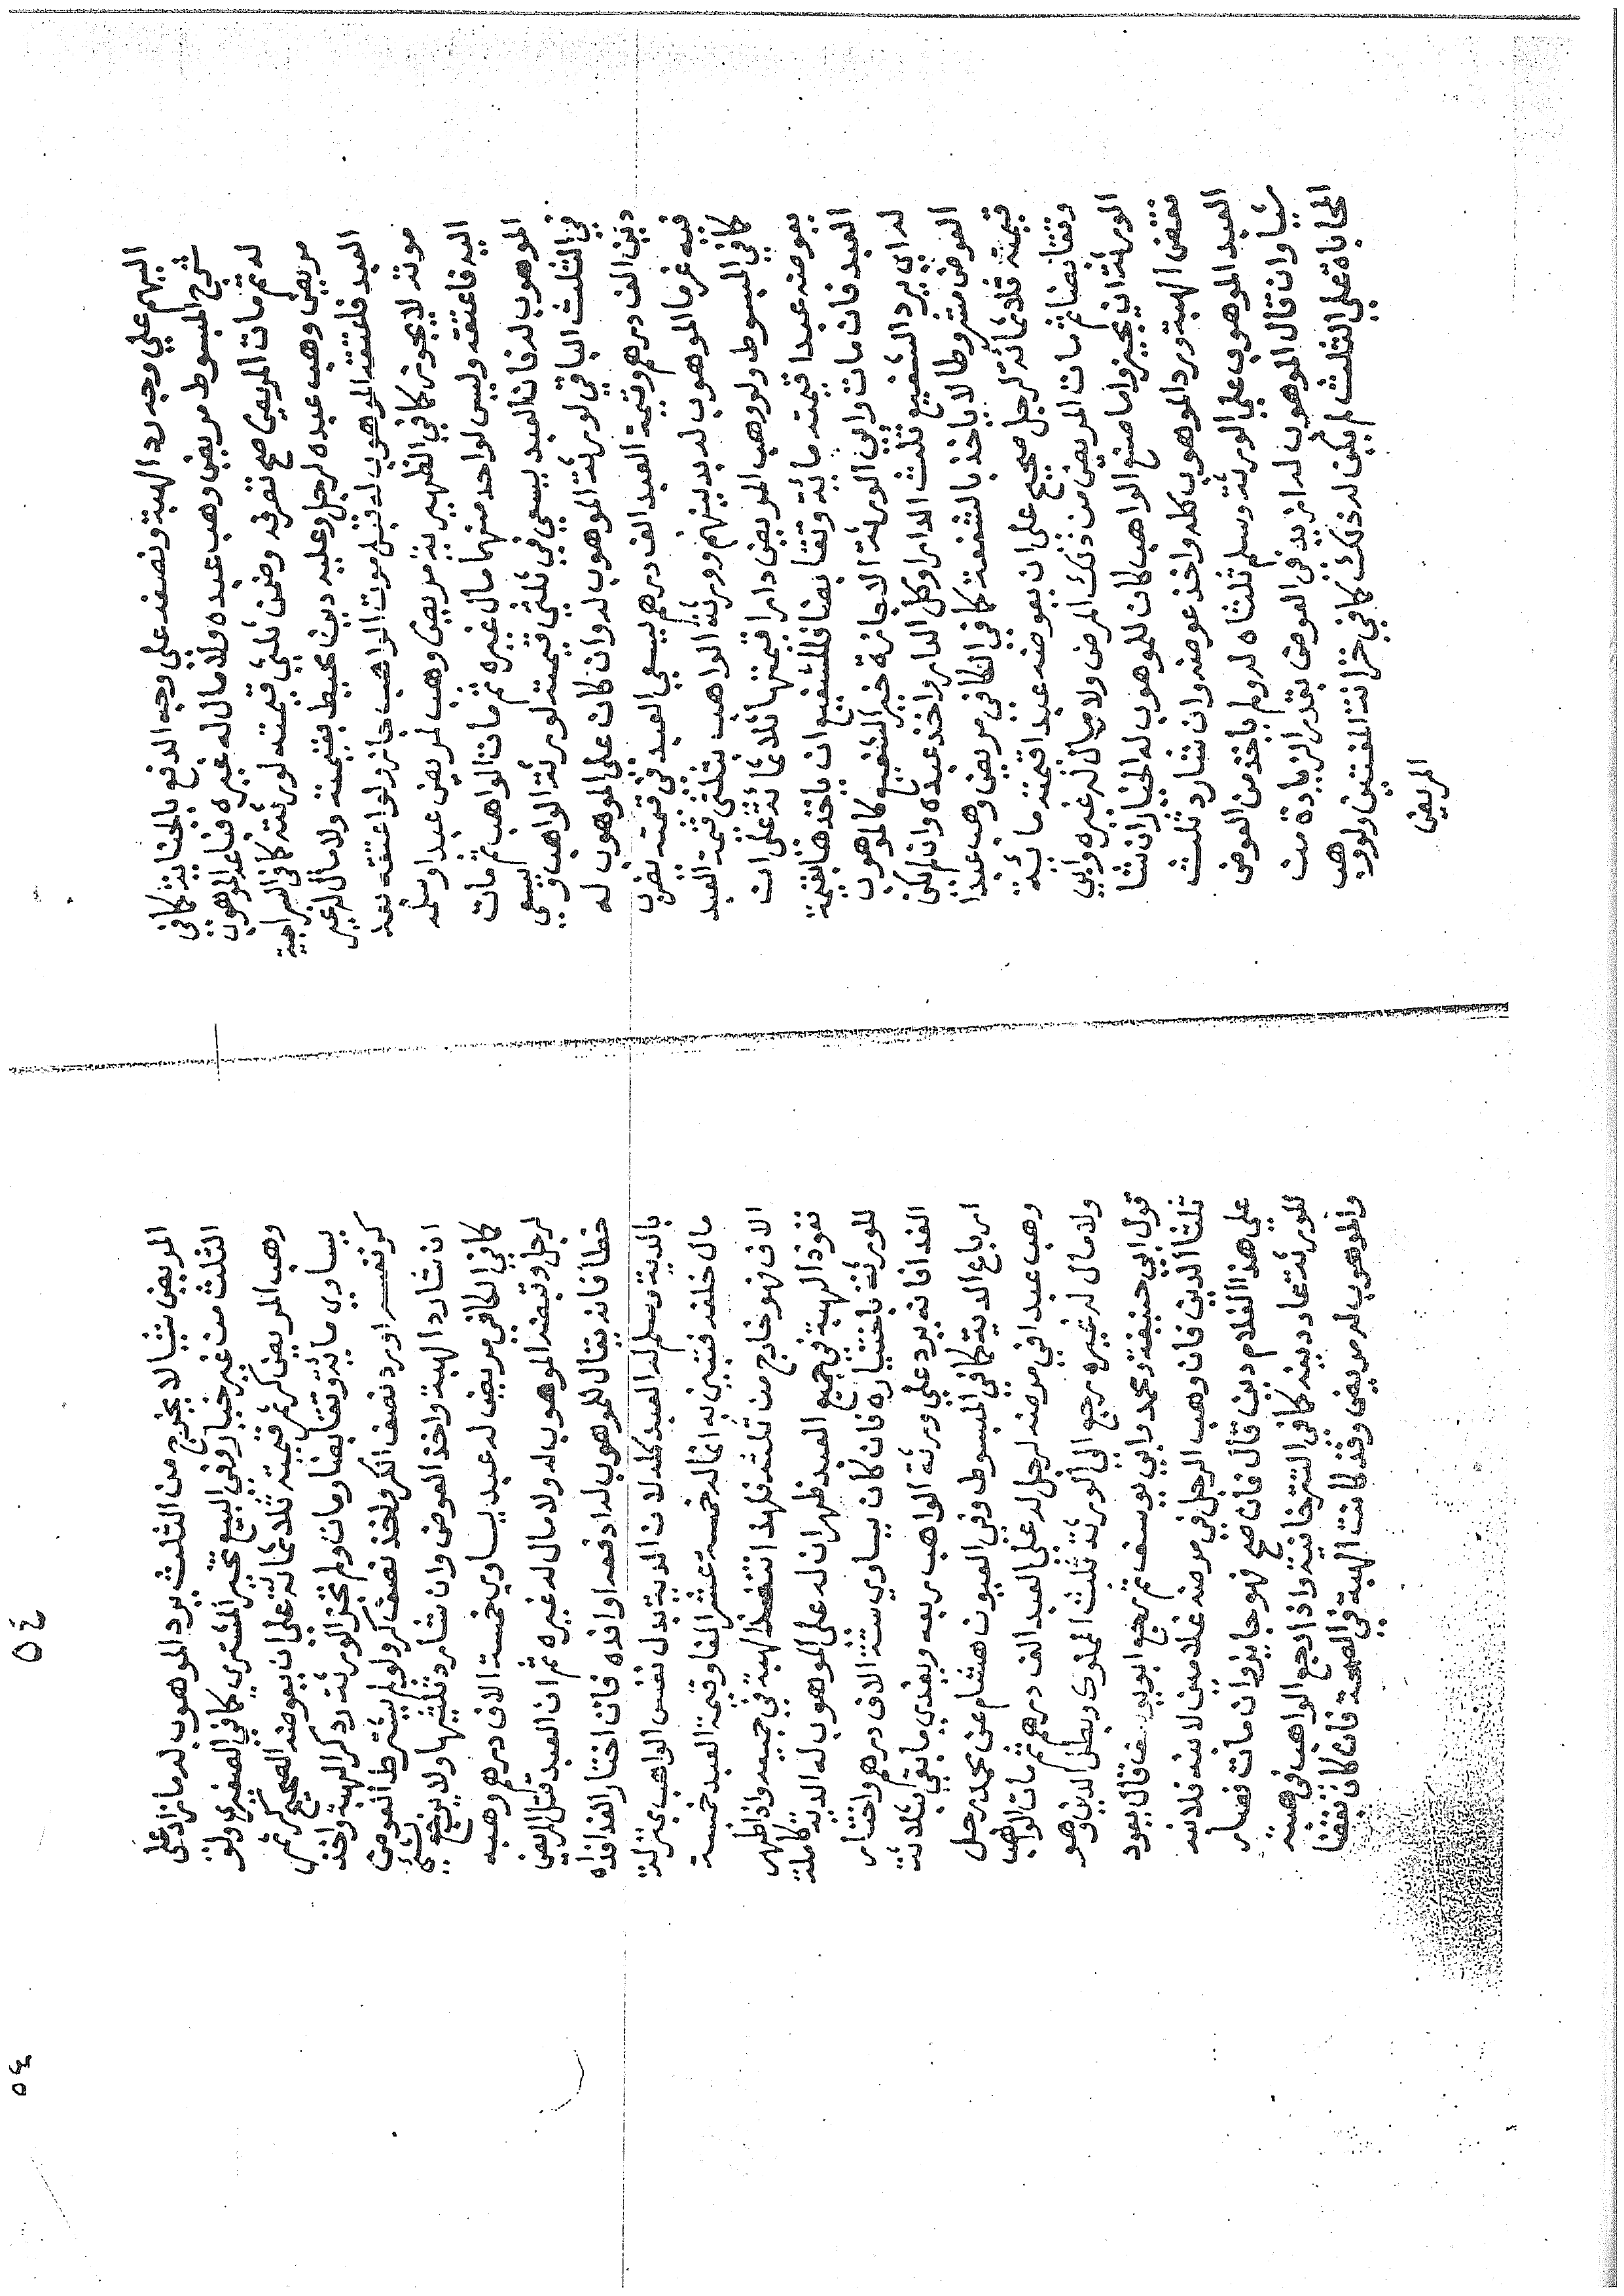 اليهم علي وجه رد الهبة ونصفه علي وجه الدفع بالجناية كما في
شرح المبسوط مريض وهب عبده ولا مال له غيره فباعه الموهوب
له ثم مات المريض صح تصرفه وضمن ثلثي قيمته لورثته كما في السراجية
مريض وهب عبده لرجل وعليه دين محيط بقيمته ولا مال له غير
العبد فاعتقه الموهوب له قبل موت الواهب جاز ولو اعتقه بعد
موته لا يجوز كما في الظهيرية مريض وهب لمريض عبدا وسلمه
اليه فاعتقه وليس لواحد منهما مال غيره ثم مات الواهب ثم مات
الموهوب له فان العبد يسعي في ثلثي قيمته لورثة الواهب ويسعي
في الثلث الباقي لورثة الموهوب له وان كان علي الموهوب له
دين الف درهم وقيمة العبد الف درهم يسعي العبد في قيمته يضرب
فيه غرما الموهوب له بدينهم وورثة الواهب بثلثي قيمة العبد
كما في المبسوط ولو وهب المريض دارا قيمتها ثلاثمائة علي ان
يعوضه عبدا قيمته مائة وتقابضا فللشفيع ان ياخذها بقيمة
العبد فان مات وابي الورثة الاجازة خير الشفيع كالموهوب
له اي يرد الشفيع ثلث الدار او كل الدار واخذ عبده وان لم يكن
العوض مشروطا لا ياخذ بالشفعة كما في الكافي مريض وهب عبدا
قيمته ثلاثمائة لرجل صحيح علي ان يعوضه عبدا قيمته مائة
وتقابضا ثم مات المريض من ذلك المرض ولا مال له غيره وابي
الورثة ان يجيزوا ما صنع الواهب كان للموهوب له الخيار ان شا
نقض الهبة ورد الموهوب كله واخذ عوضه وان شا رد ثلث
العبد الموهوب علي الورثة وسلم ثلثاه له ولم ياخذ من العوض
شيا وان قال الموهوب له ازيد في العوض بقدر الزيادة من
المحاباة علي الثلث لم يكن له ذلك كما في خزانة المفتين ولو وهب
المريض
٥٤
المريض شيا لا يخرج من الثلث يرد الموهوب له ما زاد علي
الثلث من غير خيار وفي البيع يخير المشتري كما في الصغري ولو
وهب المريض كر تمر قيمته ثلاثمائة علي ان يعوضه الصحيح كر تمر
يساوي مائة وتقابضا ومات ولم تجز الورثة رد كر الهبة واخذ
كر نفسه او رد نصف الكر واخذ نصف كره ولو لم يشترط العوض
ان شا رد الهبة واخذ العوض وان شا رد ثلثيها ولا يرجع بشي
كما في الكافي مريض له عبد يساوي خمسة الاف درهم وهبه
لرجل وقبضه الموهوب له ولا مال له غيره ثم ان العبد قتل المريض
خطا فانه يقال للموهوب له ادفعه او افده فان اختار الفدا فداه
بالدية وسلم له العبد كله لان الدية بدل نفس الواهب بمنزلة
مال خلفه فتبين به انما له خمسة عشر الفا وقيمة العبد خمسة
الاف فهو خارج من ثلثه فلهذا تنفذ الهبة في جميعه واذا ظهر
نفوذ الهبة في جميع العبد ظهر ان له علي الموهوب له الدية كاملة
للورثة باختياره فان كان يساوي ستة الاف درهم واختار
الفدا فانه يرد علي ورثة الواهب ربعه ويفدي ما بقي بثلاثة
ارباع الدية كما في المبسوط وفي العيون هشام عن محمد رجل
وهب عبدا في مرضه لرجل له علي العبد الف درهم ثم مات الواهب
ولا مال له غيره يرجع الي الورثة ثلث المملوك وبطل الدين وهو
قول ابي حنيفة ومحمد وابي يوسف ثم رجع ابو يوسف فقال يعود
ثلثا الدين فان وهب الرجل في مرضه غلامين لابنه فلانه
علي هذا الغلام دين قال فان صح فهو جايز وان مات فصار
للورثة عاد دينه كما في التترخانية واذا رجع الواهب في هبته
والموهوب له مريض وقد كانت الهبة في الصحة فان كان بقضا
٥٤